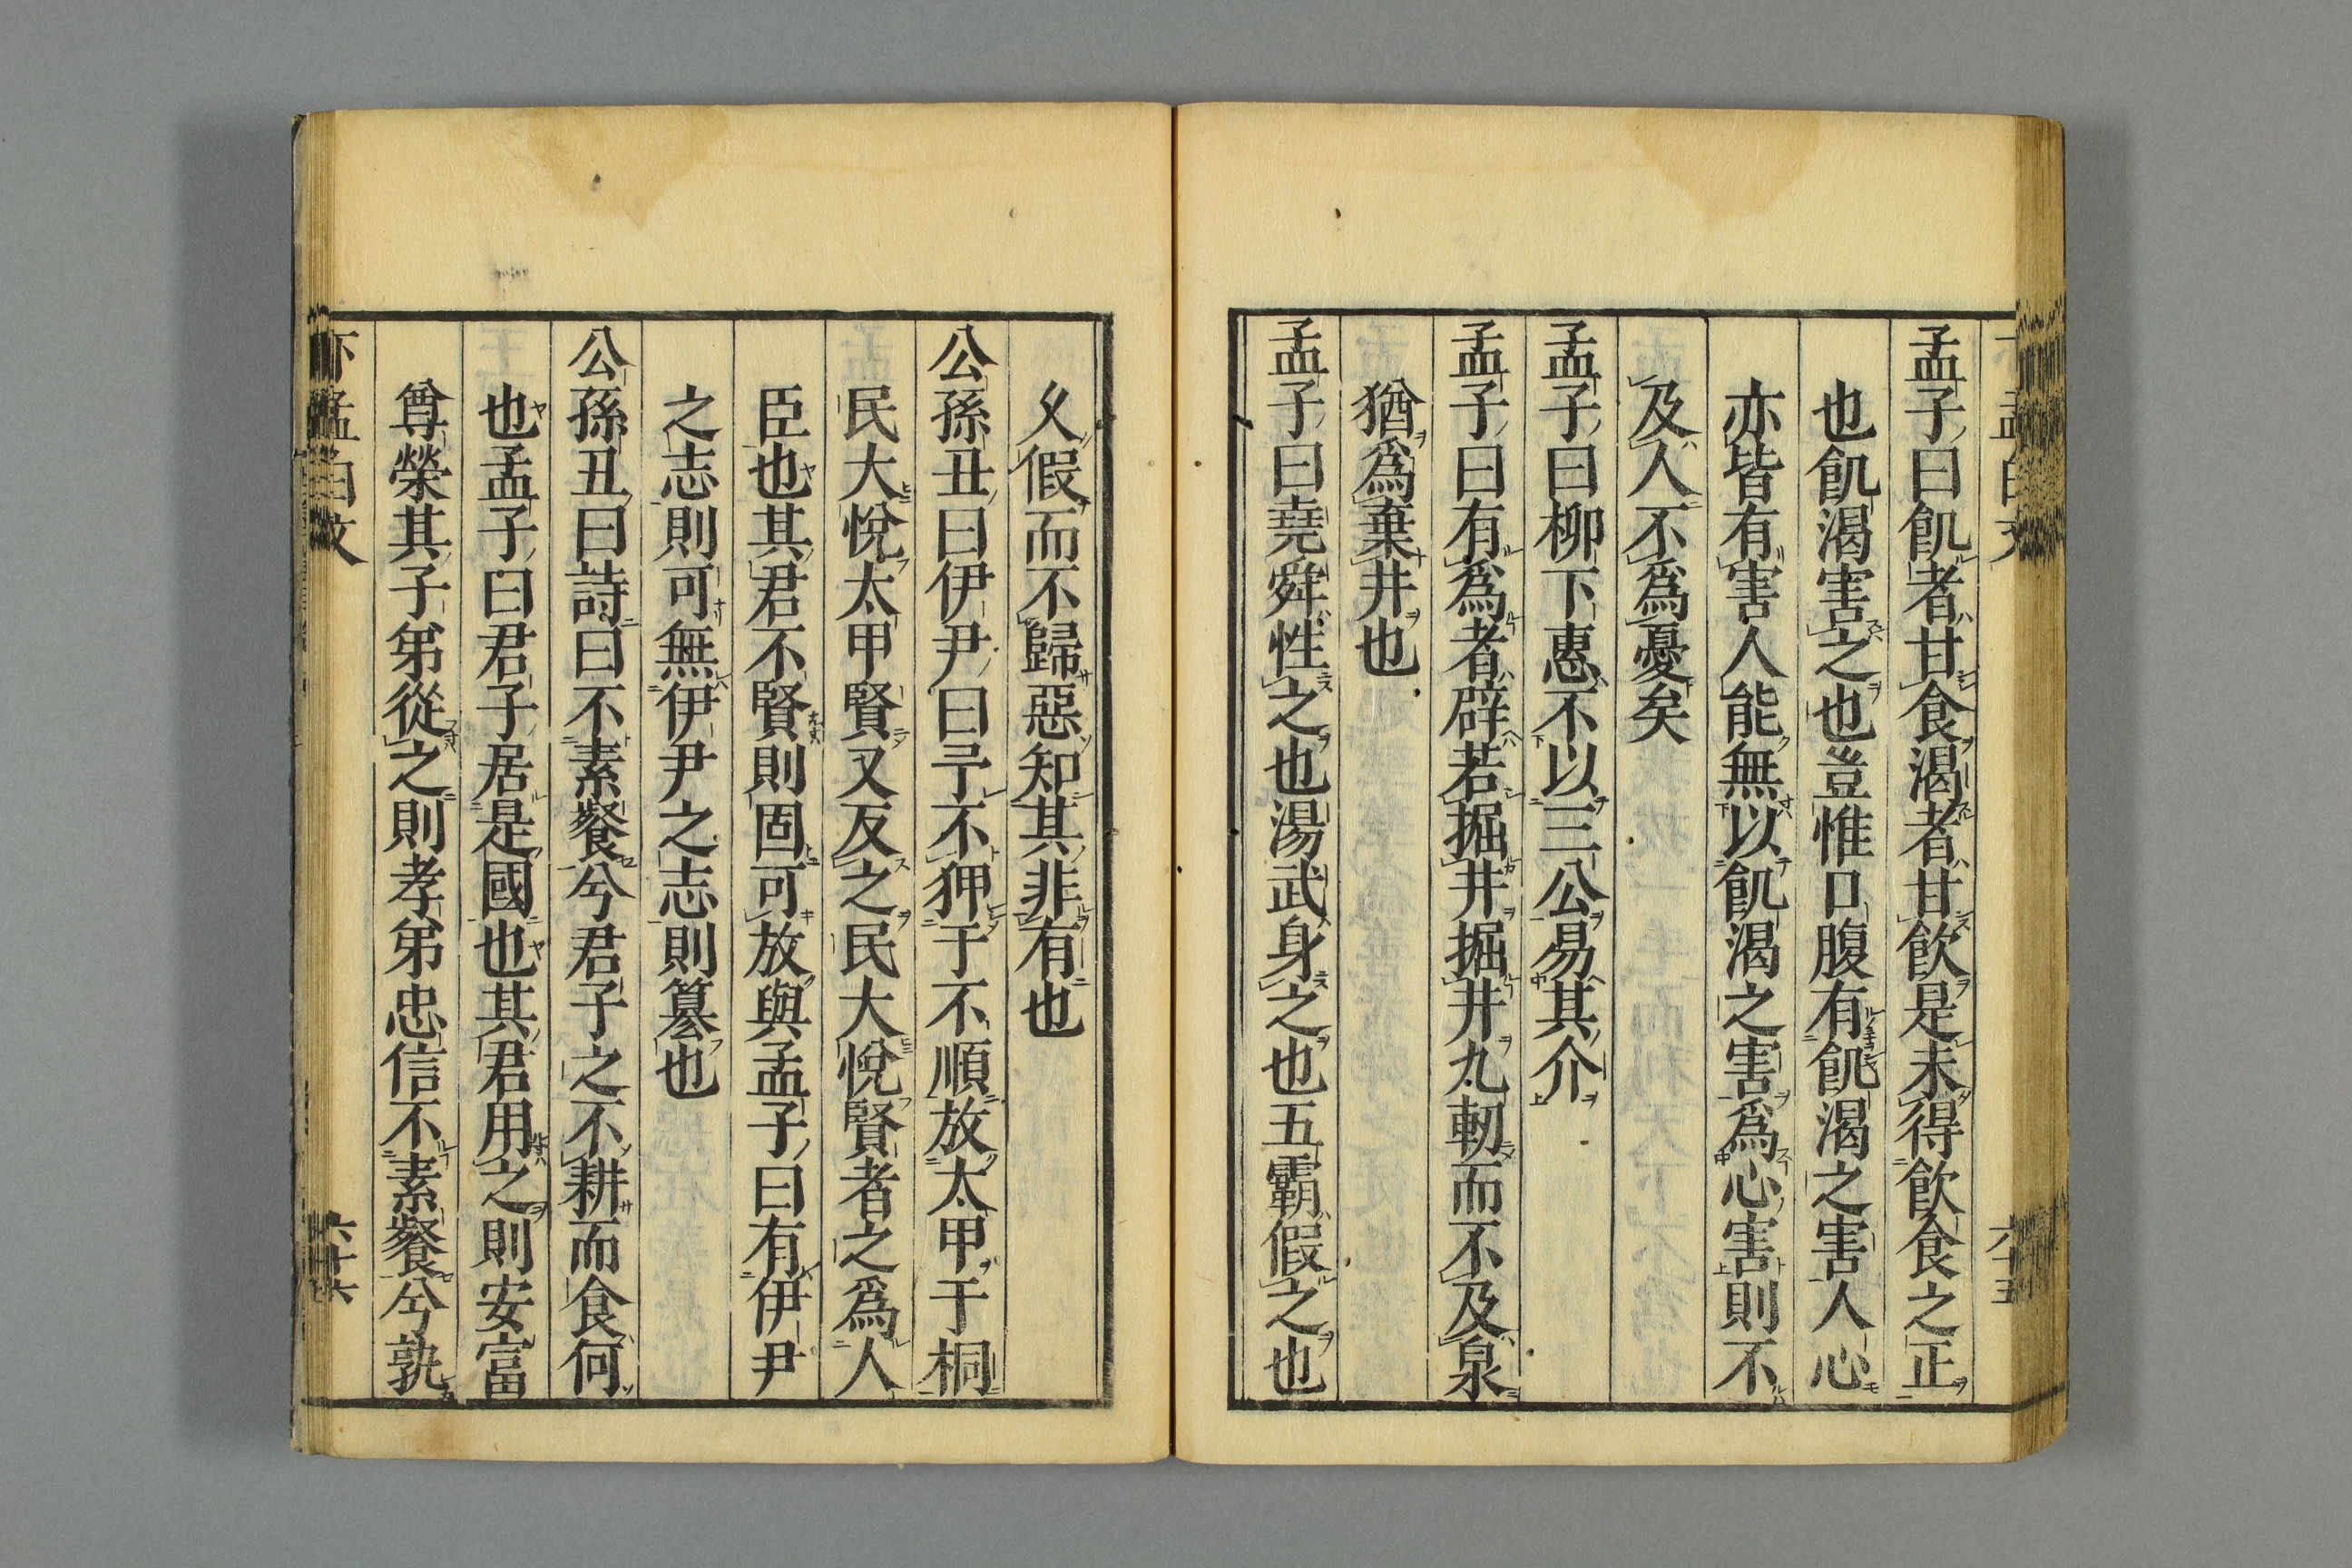 孟子曰飢者甘食渴者甘飲是未得飲食之正
也飢渴害之也豈惟口腹有飢渴之害人心
亦皆有害人能無以飢渴之害爲心害則不
及人不爲憂矣
孟子曰柳下惠不以三公易其介
孟子曰有爲者辟若掘井掘井九軔而不及泉
猶爲棄井也
孟子曰堯舜性之也湯武身之也五霸假之也
久假而不歸惡知其非有也
公孫丑曰伊尹曰予不狎于不順放太甲于桐
民大悅太甲賢又反之民大悅賢者之爲人
臣也其君不賢則固可放與孟子曰有伊尹
之志則可無伊尹之志則簒也
公孫丑曰詩曰不素餐兮君子之不耕而食何
也孟子曰君子居是國也其君用之則安富
尊榮其子弟從之則孝弟忠信不素餐兮孰
六十六